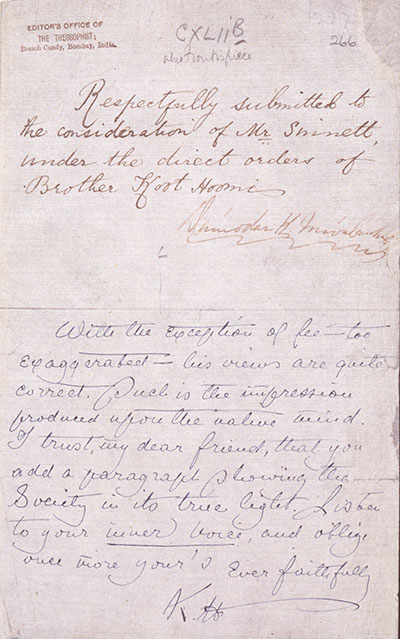 EDITOR'S OFFICE OF
THE THEOSOPHIST;
Breach Candy, Bombay, India.
CXLIIB
also Frontispiece
266
Respectfully submitted to
the consideration of Mr Sinnett,
under the direct orders of
Brother Koot Hoomi
Damodar K. Mavalankar
With the exception of fee — too
exaggerated — his views are quite
correct. Such is the impression
produced upon the native mind.
I trust, my dear friend, that you
add a paragraph showing the
Society in its true light. Listen
to your inner voice, and oblige
once more your's Ever faithfully
K.H.